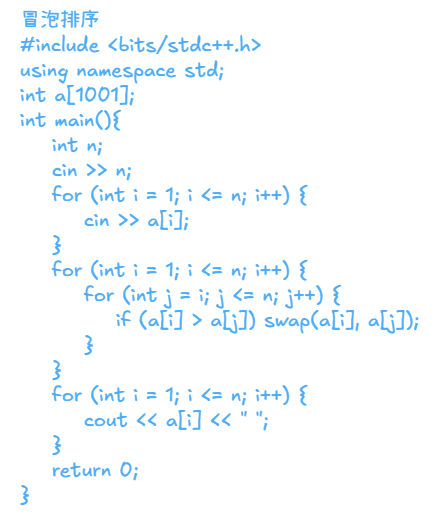 冒泡排序
#include <bits/stdc++.h>
using namespace std;
int a[1001];
int main(){
    int n;
    cin >> n;
    for (int i = 1; i <= n; i++) {
        cin >> a[i];
    }
    for (int i = 1; i <= n; i++) {
        for (int j = i; j <= n; j++) {
            if (a[i] > a[j]) swap(a[i], a[j]);
        }
    }
    for (int i = 1; i <= n; i++) {
        cout << a[i] << " ";
    }
    return 0;
}